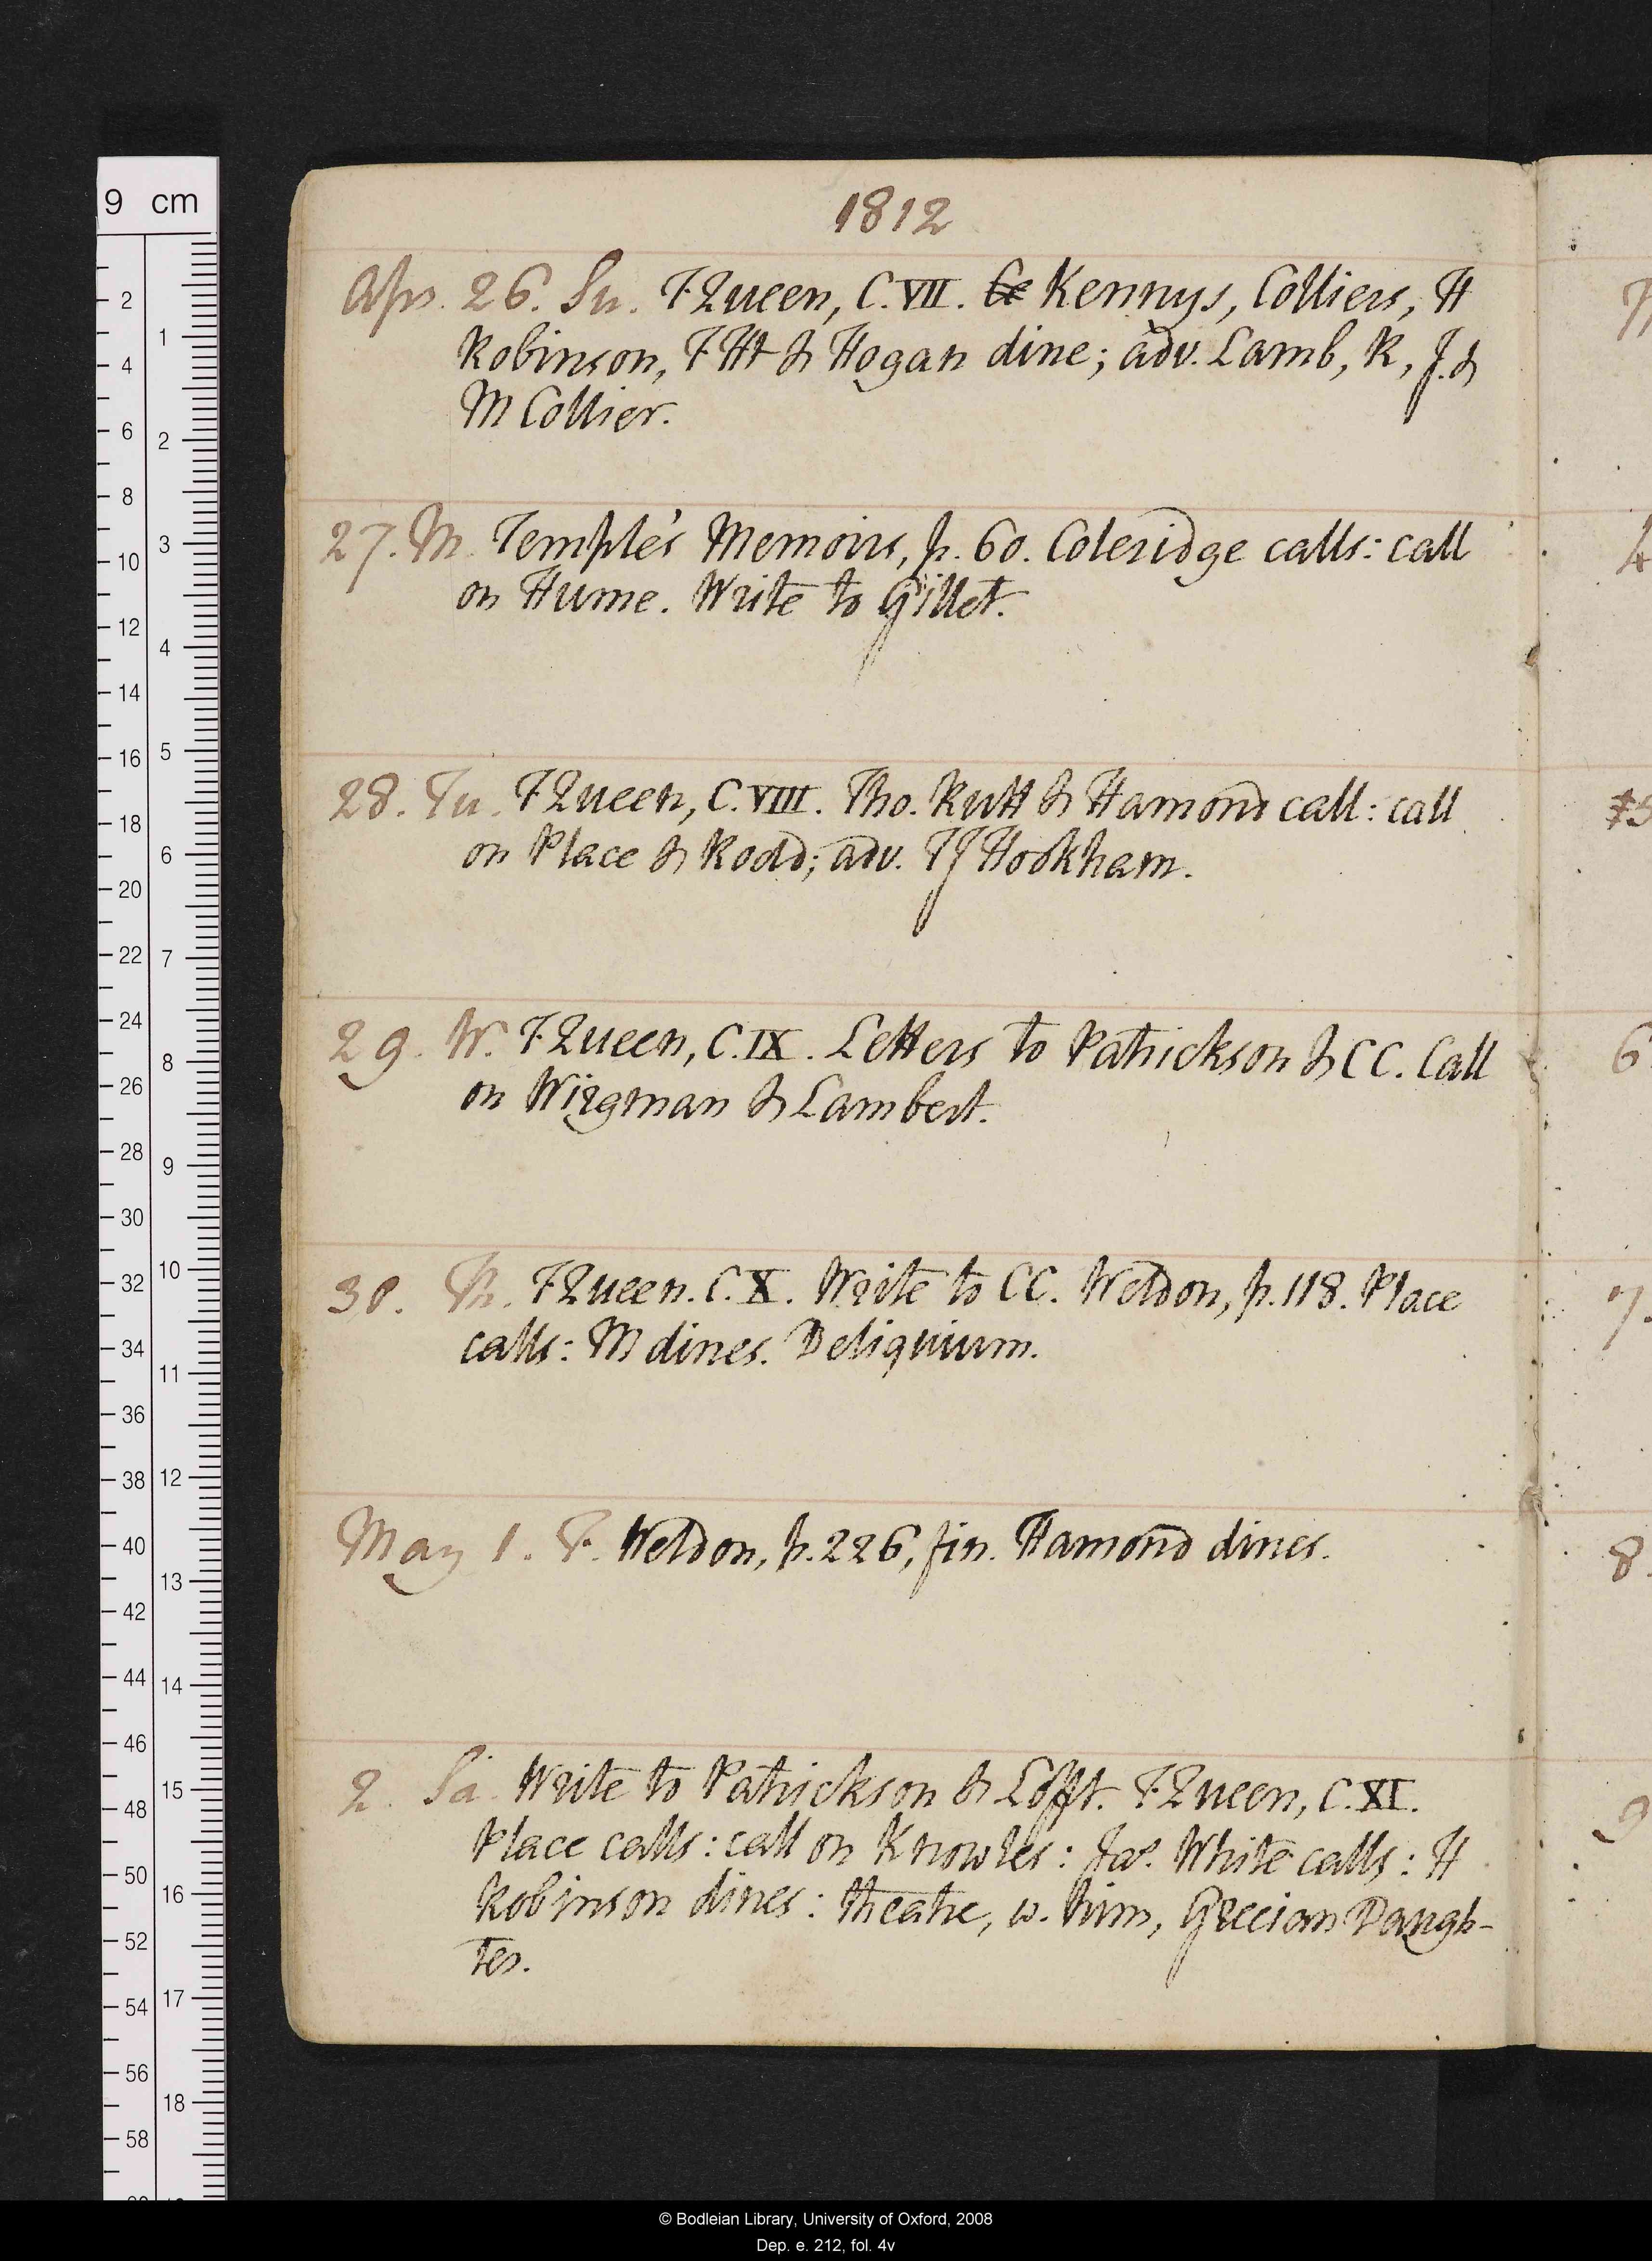 1812
Apr. 26. Su. F Queen, C. VII. Kennys, Colliers, H
Robinson, F Ht & Hogan dine; adv. Lamb, R, J. &
M Collier.
27. M. Temple's Memoirs, p. 60. Coleridge calls: call
on Hume. Write to Gillet.
28. Tu. F Queen, C. VIII. Tho. Rutt & Hamond call: call
on Place & Rodd; adv. TJ Hookham.
29. W. F Queen, C. IX. Letters to Patrickson & CC. Call
on Wirgman & Lambert.
30. Th. F Queen. C. X. Write to CC. Weldon, p. 118. Place
calls: M dines. Deliquium.
May 1. F. Weldon, p. 226, fin. Hamond dines.
2. Sa. Write to Patrickson & Lofft. F Queen, C. XI.
Place calls: call on Knowles: Jas. White calls: H
Robinson dines: theatre, w. him, Grecian Daugh-
ter.
9 cm
© Bodleian Library, University of Oxford, 2008
Dep. e. 212, fol. 4v